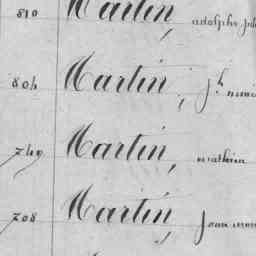 810 Martin, adolphe
804 Martin, Jh
749 Martin, mathieu
708 Martin, Jean